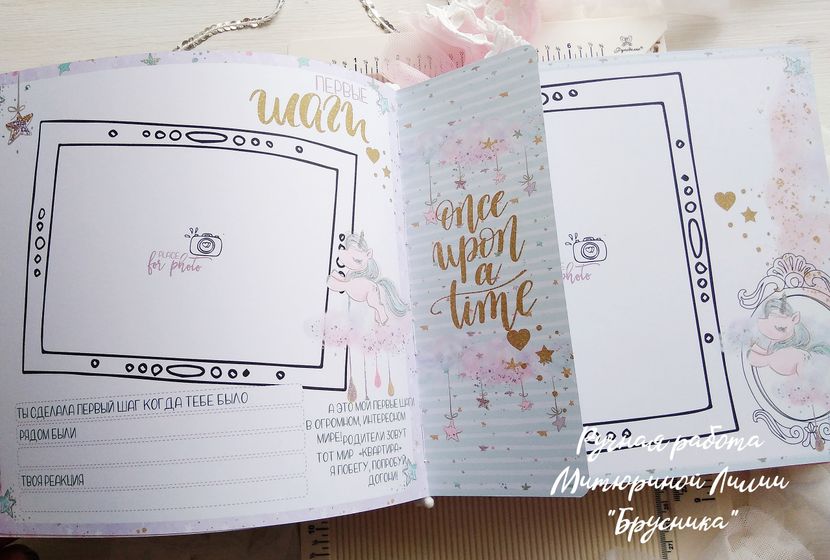 ПЕРВЫЕ
шаги
PLACE
for photo
ТЫ СДЕЛАЛА ПЕРВЫЙ ШАГ КОГДА ТЕБЕ БЫЛО
РЯДОМ БЫЛИ
ТВОЯ РЕАКЦИЯ
А ЭТО МОЙ ПЕРВЫЕ ШАГИ
В ОГРОМНОМ, ИНТЕРЕСНОМ
МИРЕ, РОДИТЕЛИ ЗОВУТ
ТОТ МИР «КВАРТИРА»
Я ПОБЕГУ, ПОПРОБУЙ
ДОГОНИ!
once
upon
a
time
photo
Ручная работа
Митюриной Лилии
"Брусника"